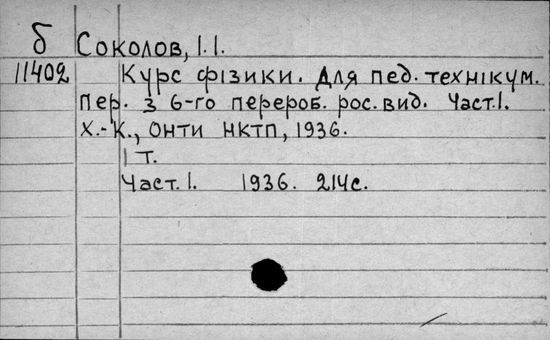 б Соколов, І.І.
11402 Курс фізики. Для пед. технікум.
Пер. з 6-го перероб. рос. вид. Част.1.
Х.-К., ОНТИ НКТП, 1936.
1 т.
Част. 1. 1936. 214с.